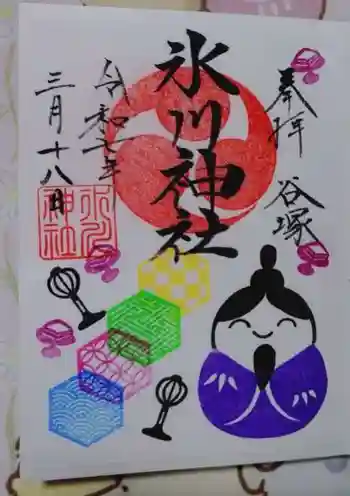 奉拝 谷塚
氷川神社
令和七年
三月十八日
氷川神社